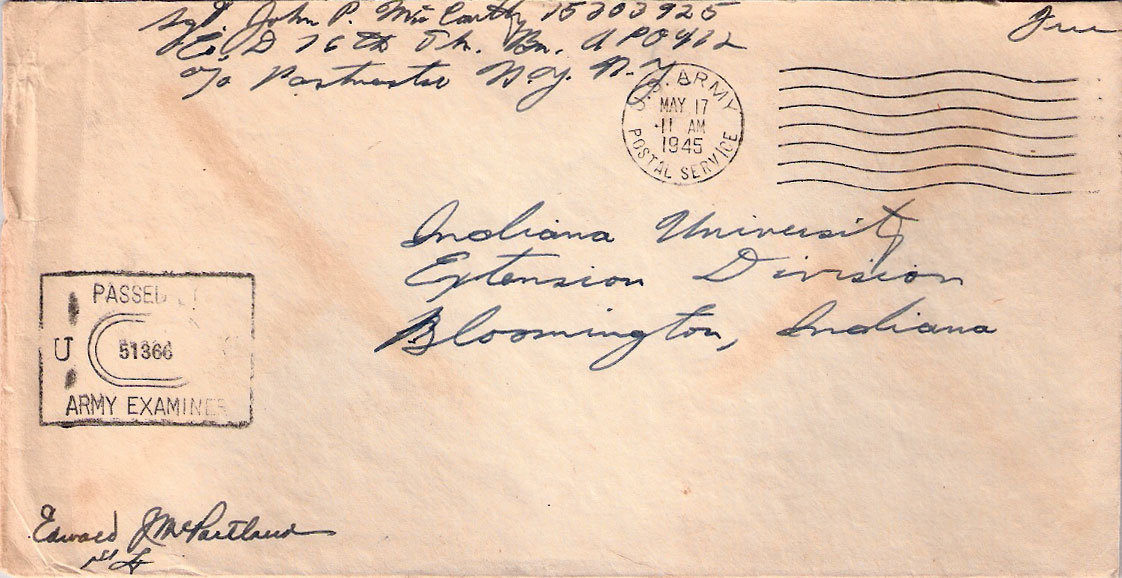 Sgt. John P. McCarthy 15303925
Free
Co. D 76th Bn. APO 412
c/o Postmaster N.Y. N.Y.
U.S. ARMY
MAY 17
11 AM
1945
POSTAL SERVICE
Indiana University
Extension Division
Bloomington, Indiana
PASSED
U
51366
ARMY EXAMINER
Edward J McPartland
1st Lt